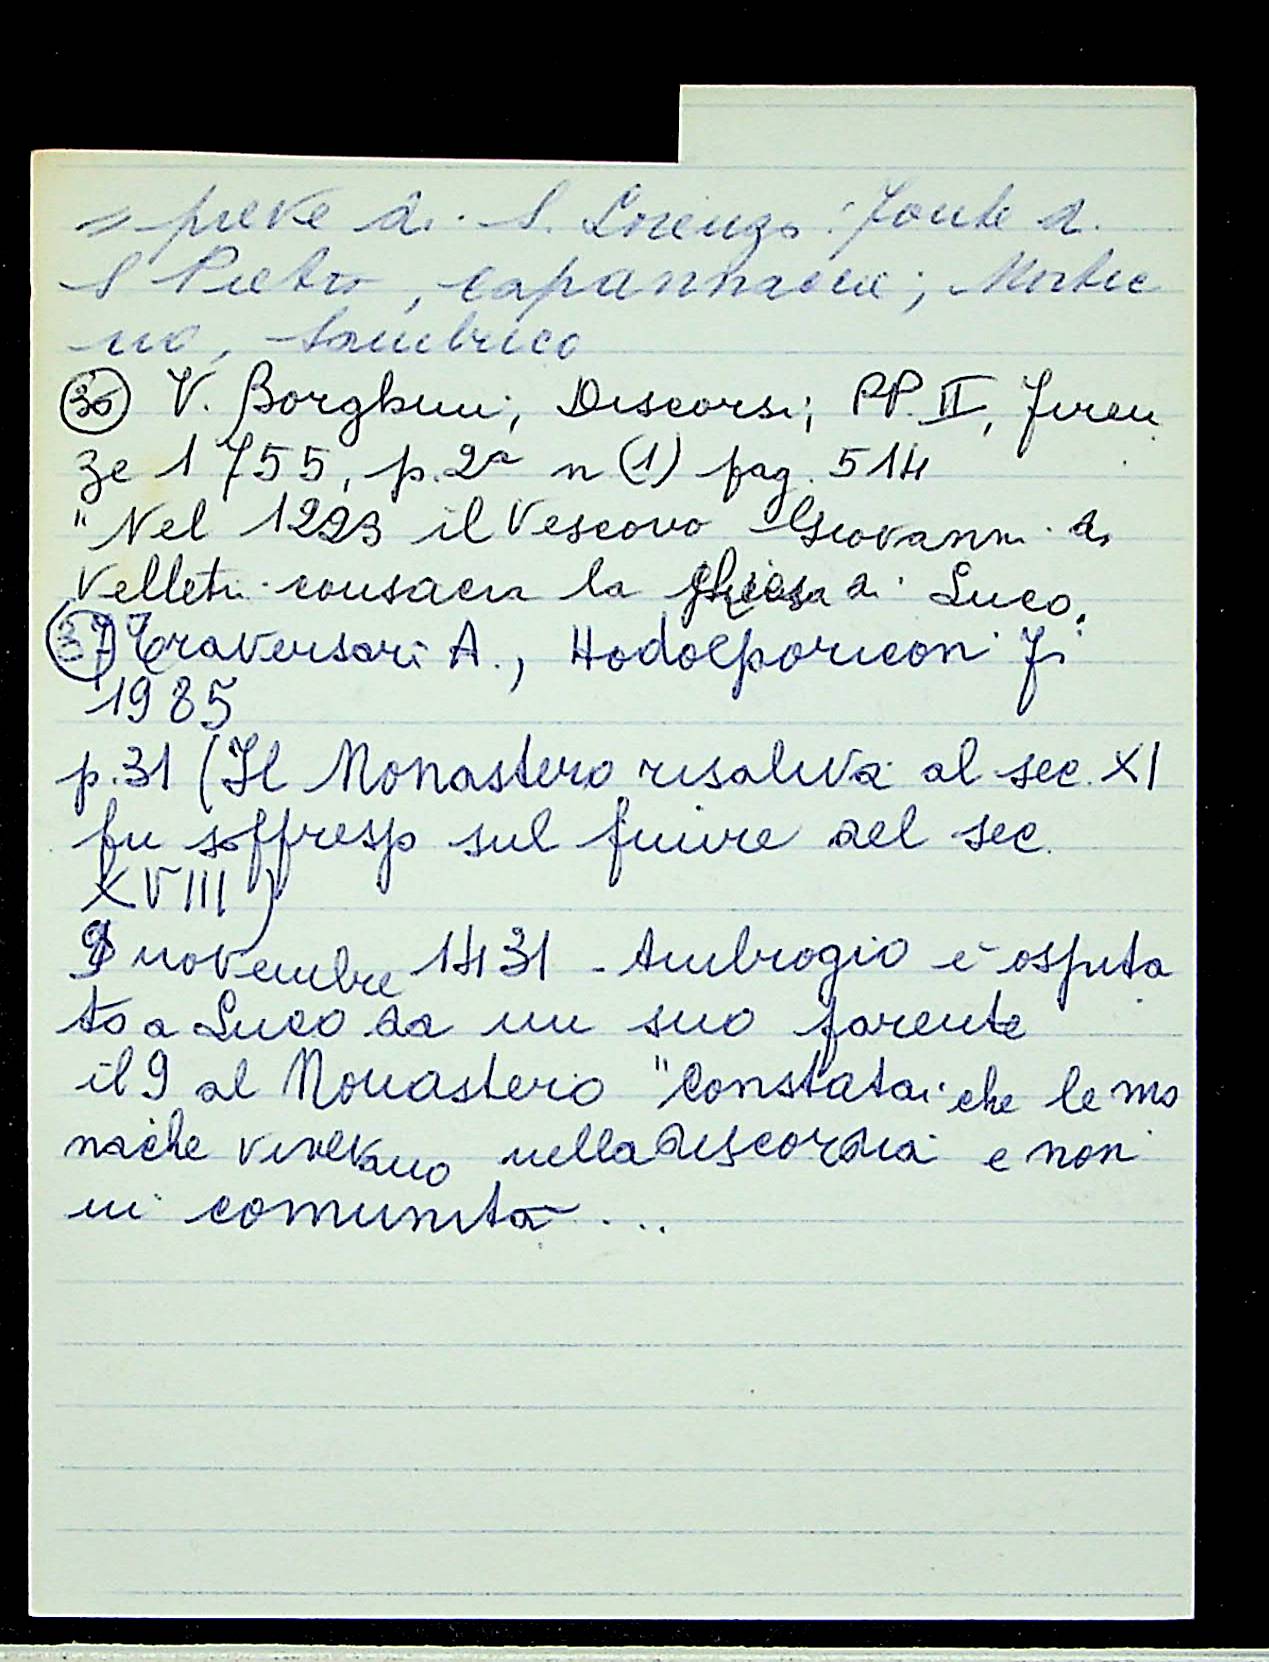 = pieve di S. Lorenzo: Fonte di
S Pietro, capannacce; Mortic
no, Sambuco
36 V. Borghini, Discorsi; PP. II, Firen
ze 1755, p. 2a n (1) pag. 514
"Nel 1223 il Vescovo Giovanni di
Velletri consacra la Chiesa di Luco.
37 Traversari A., Hodoeporicon Fi
1985
p. 31 (Il Monastero risaliva al sec. XI
fu soppresso sul finire del sec.
XVIII)
novembre 1431 - Ambrogio è ospita
to a Luco da un suo parente
il 9 al Monastero "Constatai che le mo
nache vivevano nella discordia e non
in comunità ...